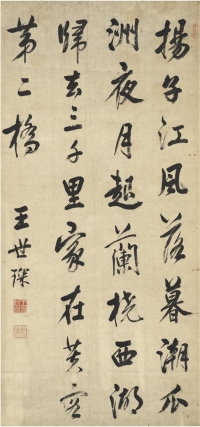 揚子江風落暮潮瓜
洲夜月蘭橈西湖
歸去三千里家在芙蓉
第二橋
王世琛